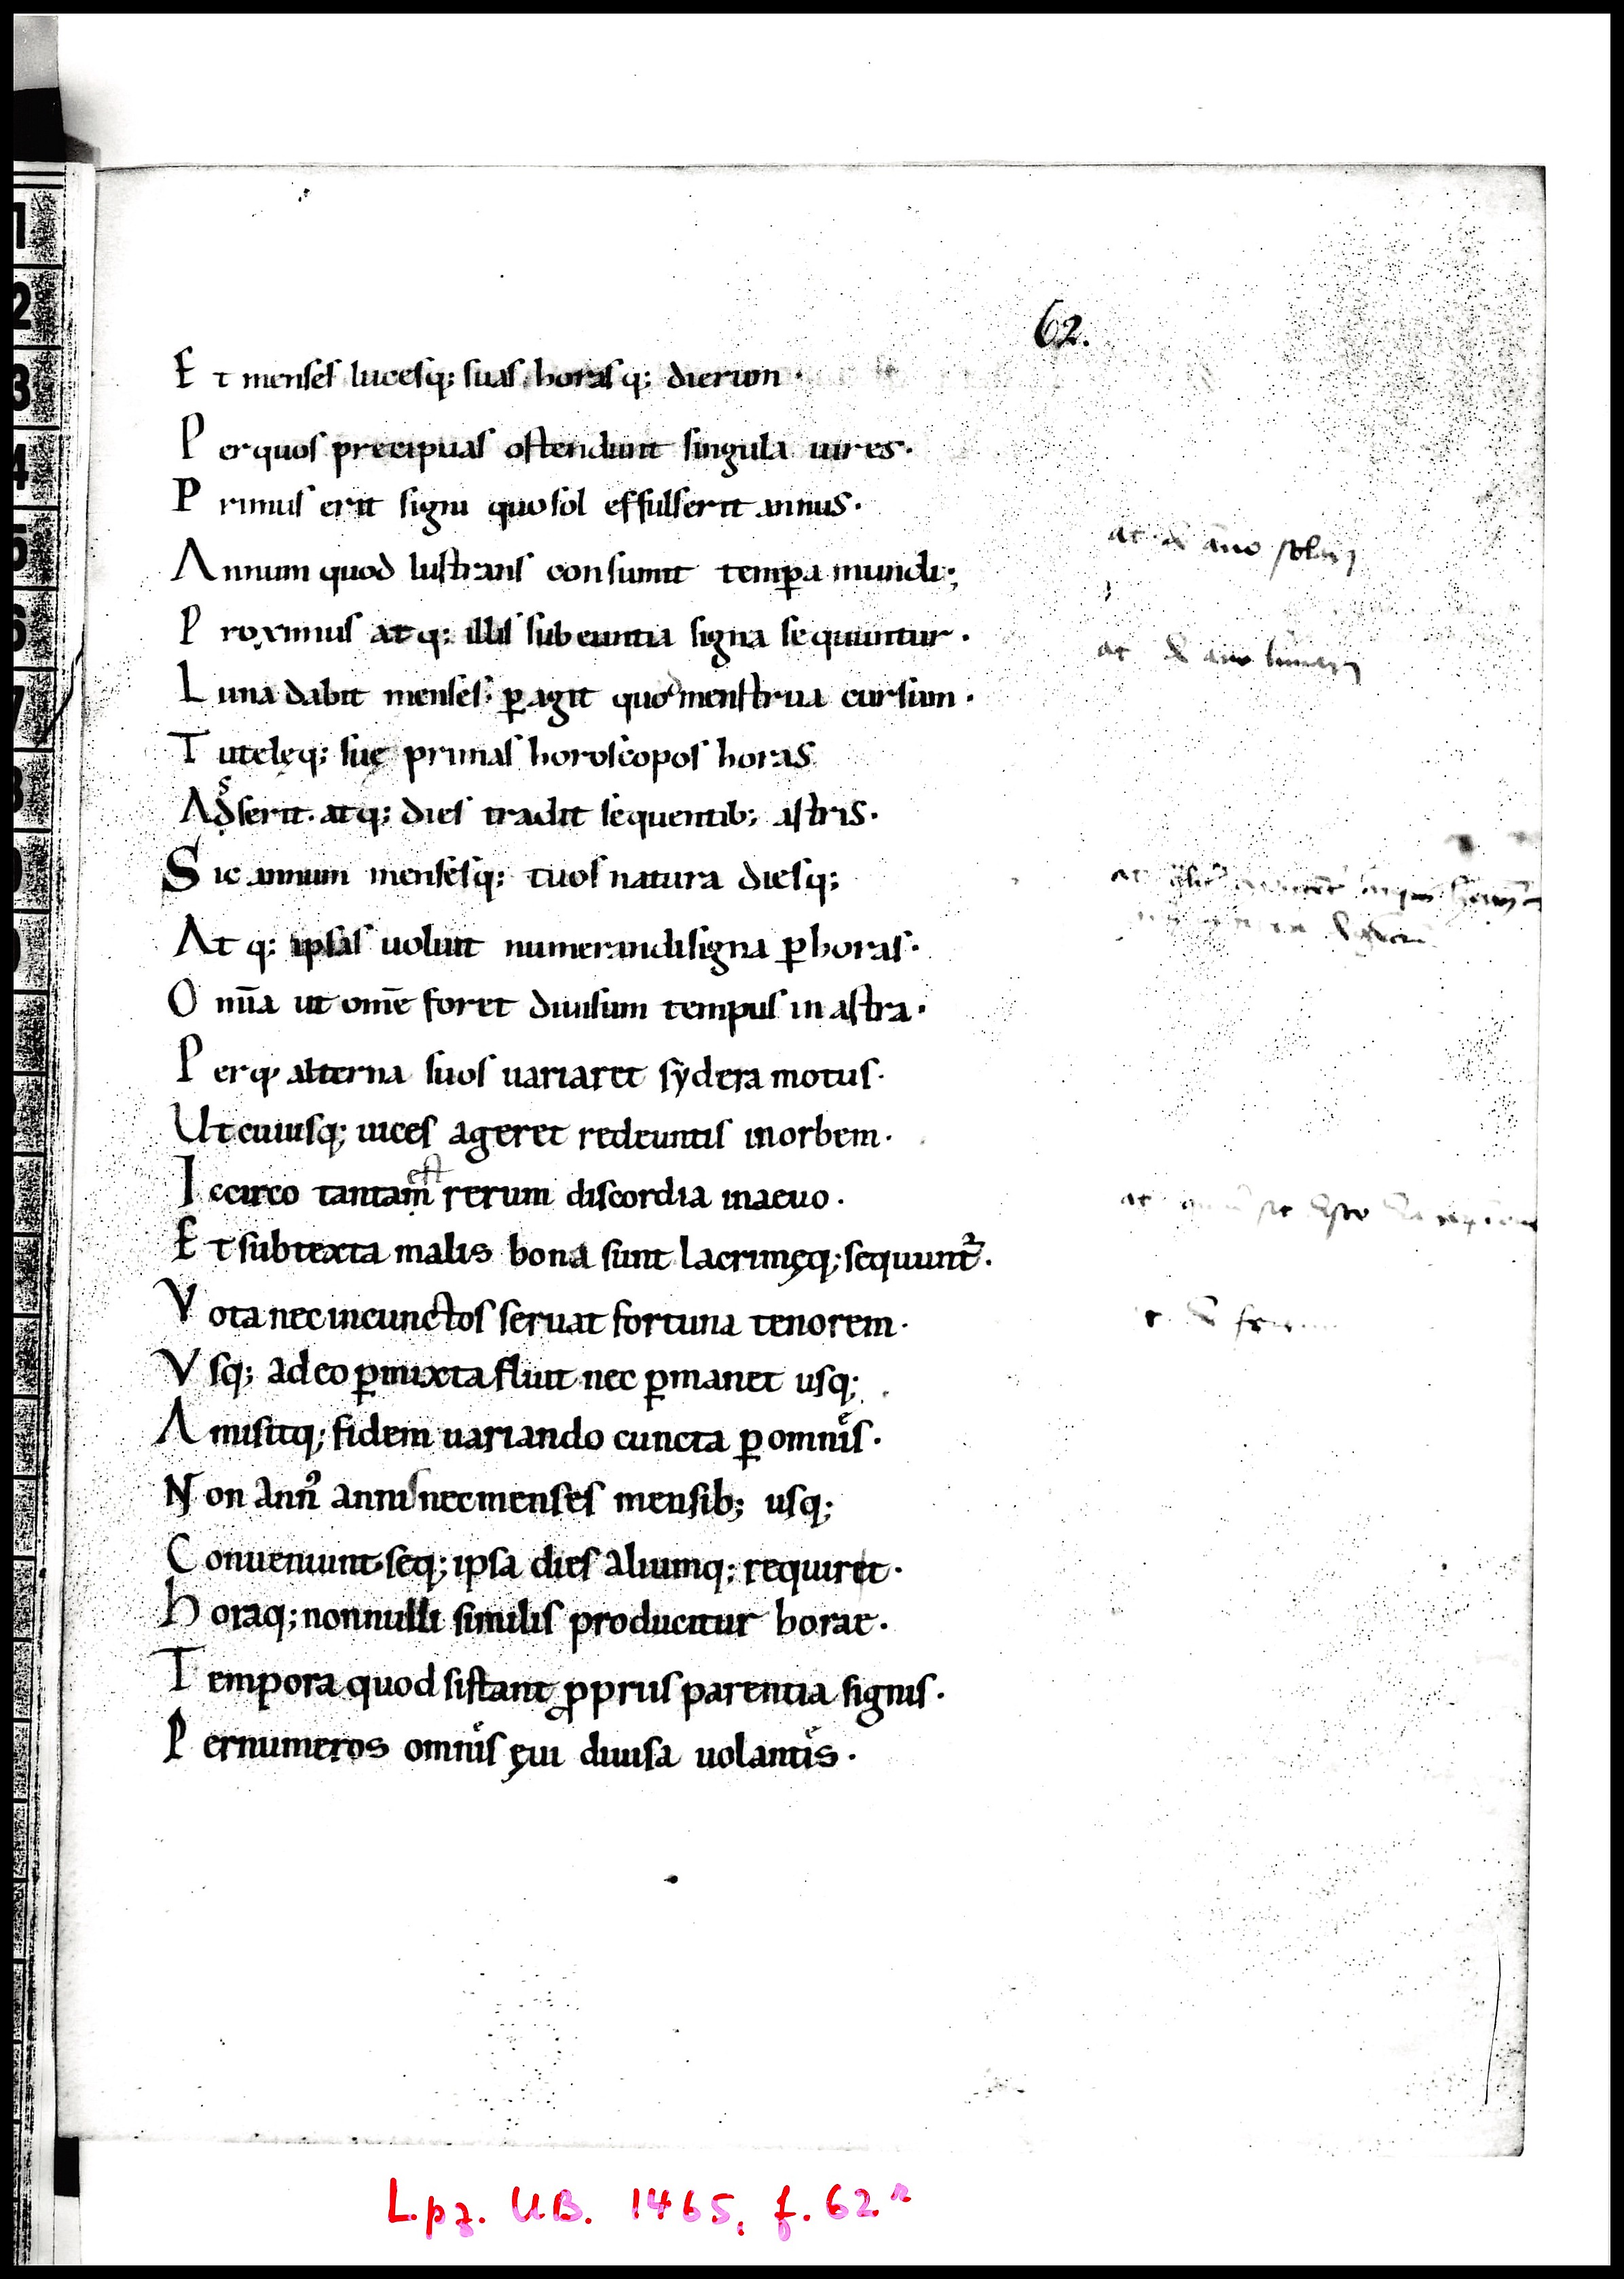 62.
Et menses lucesq; suas horasq; dierum·
Per quos precipuas ostendunt singula uires·
Primus erit signi quo sol effulserit annus·
Annum quod lustrans consumit temꝑa mundi;
Proximus atq; illis subeuntia signa sequuntur·
Luna dabit menses· ꝑagit quos menstrua cursum·
Tutelęq; suę primas horoscopos horas
Adserit· atq; dies tradit sequentib; astris·
Sic annum mensesq; tuos natura diesq;
Atq; ipsas uoluit numerandi signa ꝑ horas·
Om̄a ut om̄e foret diuisum tempus in astra·
Perq; alterna suos uariaret sydera motus·
Ut cuiusq; uices ageret redeuntis in orbem·
est
Iccirco tantam rerum discordia in aeuo·
Et subtexta malis bona sunt lacrimęq; sequunt᷑·
Vota nec in cunctos seruat fortuna tenorem·
Vsq; adeo ꝑmixta fluit nec ꝑmanet usq;
Amisitq; fidem uariando cuncta ꝑ omnis·
Non annꝰ annis nec menses mensib; usq;
Conueniunt seq; ipsa dies aliumq; requiret·
Horaq; non nulli similis producitur horae·
Tempora quod sistant ꝓpriis parentia signis·
Per numeros omnis ęui diuisa uolantis·
Lpz. UB. 1465, f. 62r